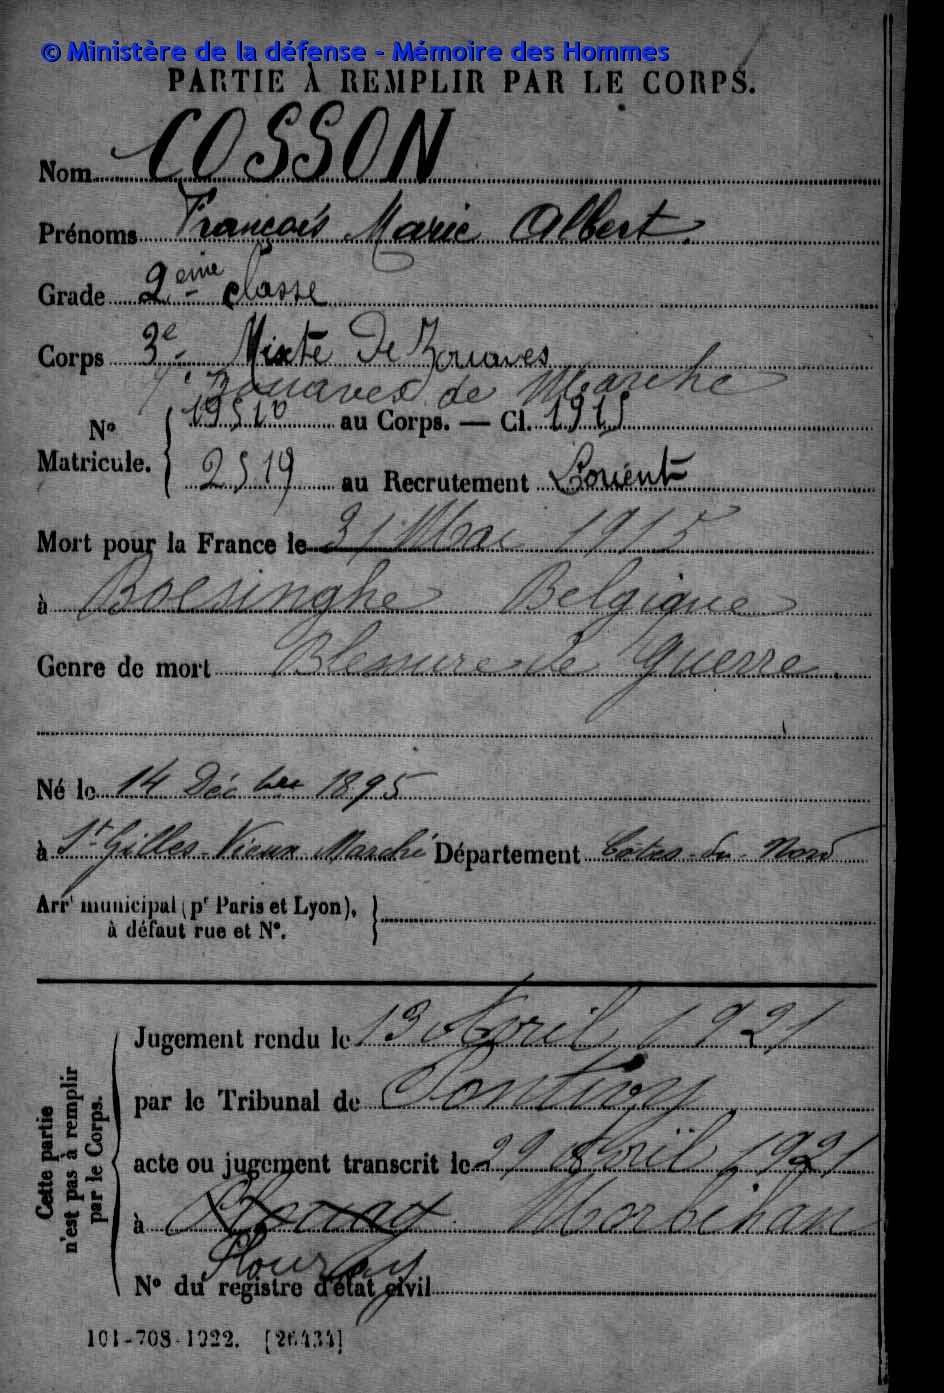 © Ministère de la défense - Mémoire des Hommes
PARTIE À REMPLIR PAR LE CORPS.
Nom COSSON
Prénoms François Marie Albert.
Grade 2eme classe
Corps 3e Mixte De Zouaves
Zouaves de Marche
N° Matricule. 19510 au Corps. — Cl. 1915
2519 au Recrutement Lorient
Mort pour la France le 31 Mai 1915
à Boesinghe Belgique
Genre de mort Blessure de guerre
Né le 14 Décbre 1895
à St Gilles-Vieux Marché Département Côtes-du-Nord
Arrt municipal (pr Paris et Lyon),
à défaut rue et N°.
Cette partie n'est pas à remplir par le Corps.
Jugement rendu le 13 Avril 1921
par le Tribunal de Pontivy
acte ou jugement transcrit le 29 Avril 1921
à Morbihan
Plouray
N° du registre d'état civil
101-708-1922. [26434]